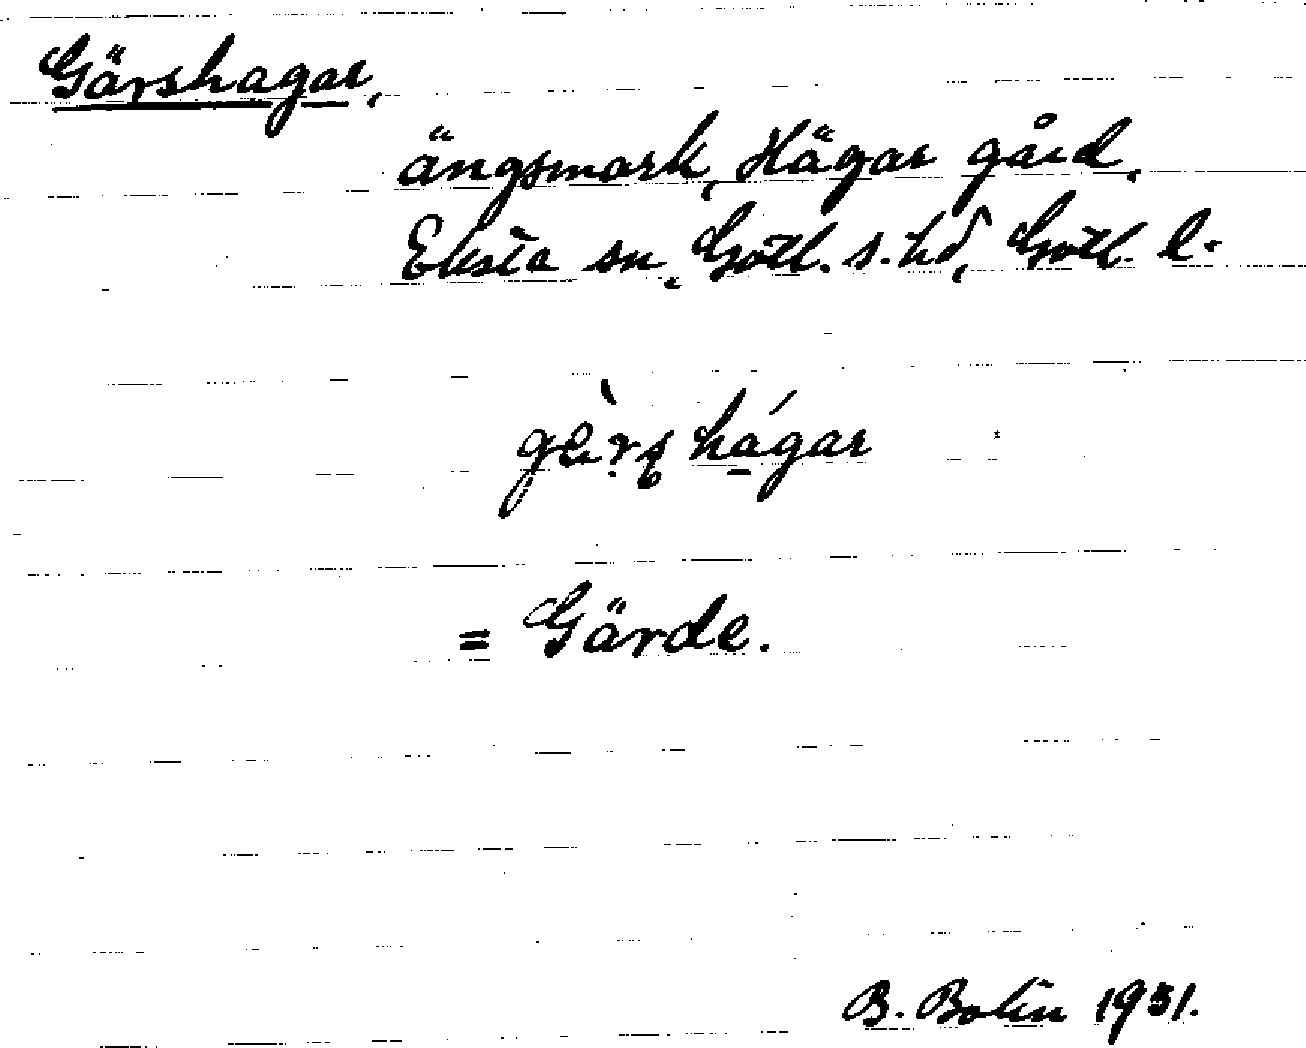 Gärshagar,
ängsmark, Hägar gård,
Eksta sn, Gotl. s. hd, Gotl. l.
gèrs hágar
= Gärde.
B. Bolin 1931.